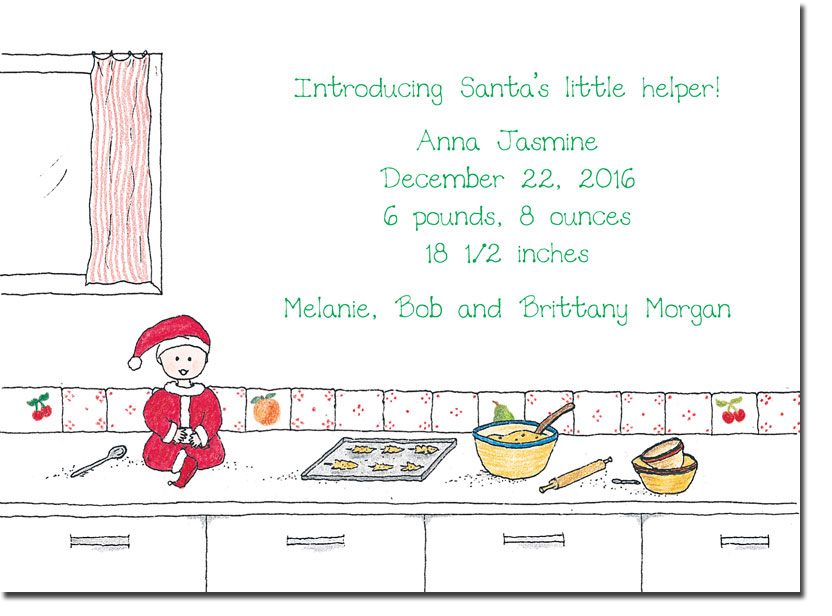 Introducing Santa's little helper!
Anna Jasmine
December 22, 2016
6 pounds, 8 ounces
18 1/2 inches
Melanie, Bob and Brittany Morgan